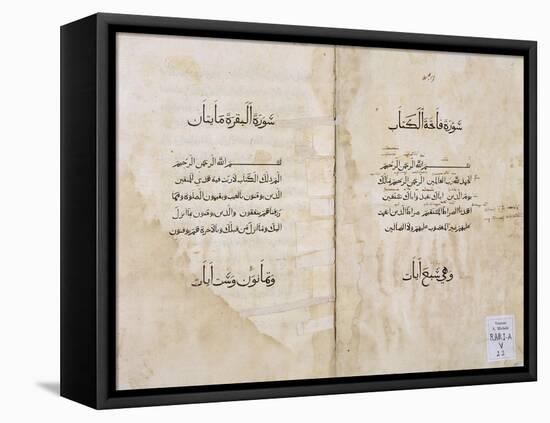 سورة فاتحة الكتاب
بسم الله الرحمن الرحيم
الحمد لله رب العالمين الرحمن الرحيم مالك
يوم الدين اياك نعبد واياك نستعين
اهدنا الصراط المستقيم صراط الذين انعمت
عليهم غير المغضوب عليهم ولا الضالين
وهي سبع ايات
سورة البقرة مايتان
بسم الله الرحمن الرحيم
الم ذلك الكتاب لا ريب فيه هدى للمتقين
الذين يومنون بالغيب ويقيمون الصلوة ومما
رزقناهم ينفقون والذين يومنون بما انزل
اليك وما انزل من قبلك وبالاخرة هم يوقنون
وثمانون وست ايات
Michele
RARI-A
V
22